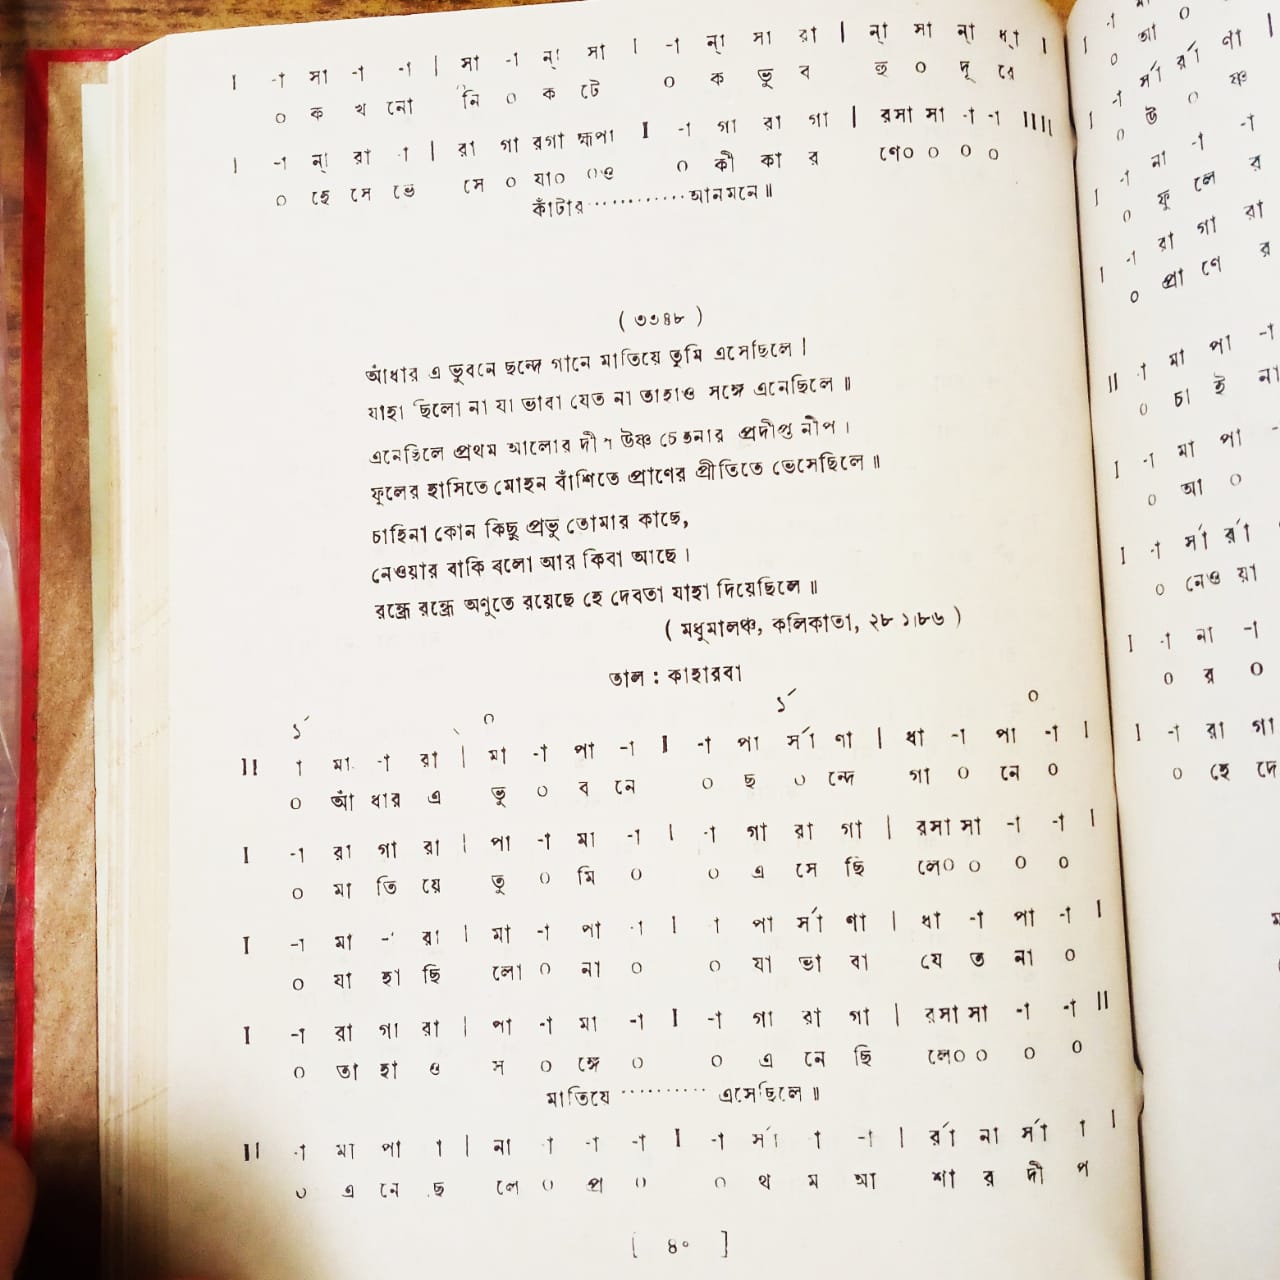 I -া সা -া -া | সা -া ন্া সা I -া ন্া সা রা | ন্া সা ন্া প্া I
০ ক খ নো নি ০ ক টে ০ ক ভু ব হু ০ দূ রে
I -া ন্া রা -া | রা গা রগা হ্মপা I -া গা রা গা | রসা সা -া -া IIII
০ হে সে ভে সে ০ যা০ ০ও ০ কী কা র ণে০ ০ ০ ০
কাঁটার ............ আনমনে॥
( ৩৩৪৮ )
আঁধার এ ভুবনে ছন্দে গানে মাতিয়ে তুমি এসেছিলে।
যাহা ছিলো না যা ভাবা যেত না তাহাও সঙ্গে এনেছিলে॥
এনেছিলে প্রথম আলোর দীপ উষ্ণ চেতনার প্রদীপ্ত নীপ।
ফুলের হাসিতে মোহন বাঁশিতে প্রাণের প্রীতিতে ভেসেছিলে॥
চাহিনা কোন কিছু প্রভু তোমার কাছে,
নেওয়ার বাকি বলো আর কিবা আছে।
রন্ধ্রে রন্ধ্রে অণুতে রয়েছে হে দেবতা যাহা দিয়েছিলে॥
( মধুমালঞ্চ, কলিকাতা, ২৮ ১।৮৬ )
তাল : কাহারবা
১´ ০ ১´ ০
II া মা -া রা | মা -া পা -া I -া পা র্সা ণা | ধা -া পা -া I
০ আঁ ধার এ ভু ০ ব নে ০ ছ ০ ন্দে গা ০ নে ০
I -া রা গা রা | পা -া মা -া I -া গা রা গা | রসা সা -া -া I
০ মা তি য়ে তু ০ মি ০ ০ এ সে ছি লে০ ০ ০ ০
I -া মা -া রা | মা -া পা -া I া পা র্সা ণা | ধা -া পা -া I
০ যা হা ছি লো ০ না ০ ০ যা ভা বা যে ত না ০
I -া রা গা রা | পা -া মা -া I -া গা রা গা | রসা সা -া -া II
০ তা হা ও স ০ ঙ্গে ০ ০ এ নে ছি লে০ ০ ০ ০
মাতিয়ে .......... এসেছিলে॥
II -া মা পা া | না া -া -া I -া র্সা া -া | র্রা না র্সা া I
০ এ নে ছ লে ০ প্র ০ ০ থ ম আ লা র দী প
[ ৪০ ]